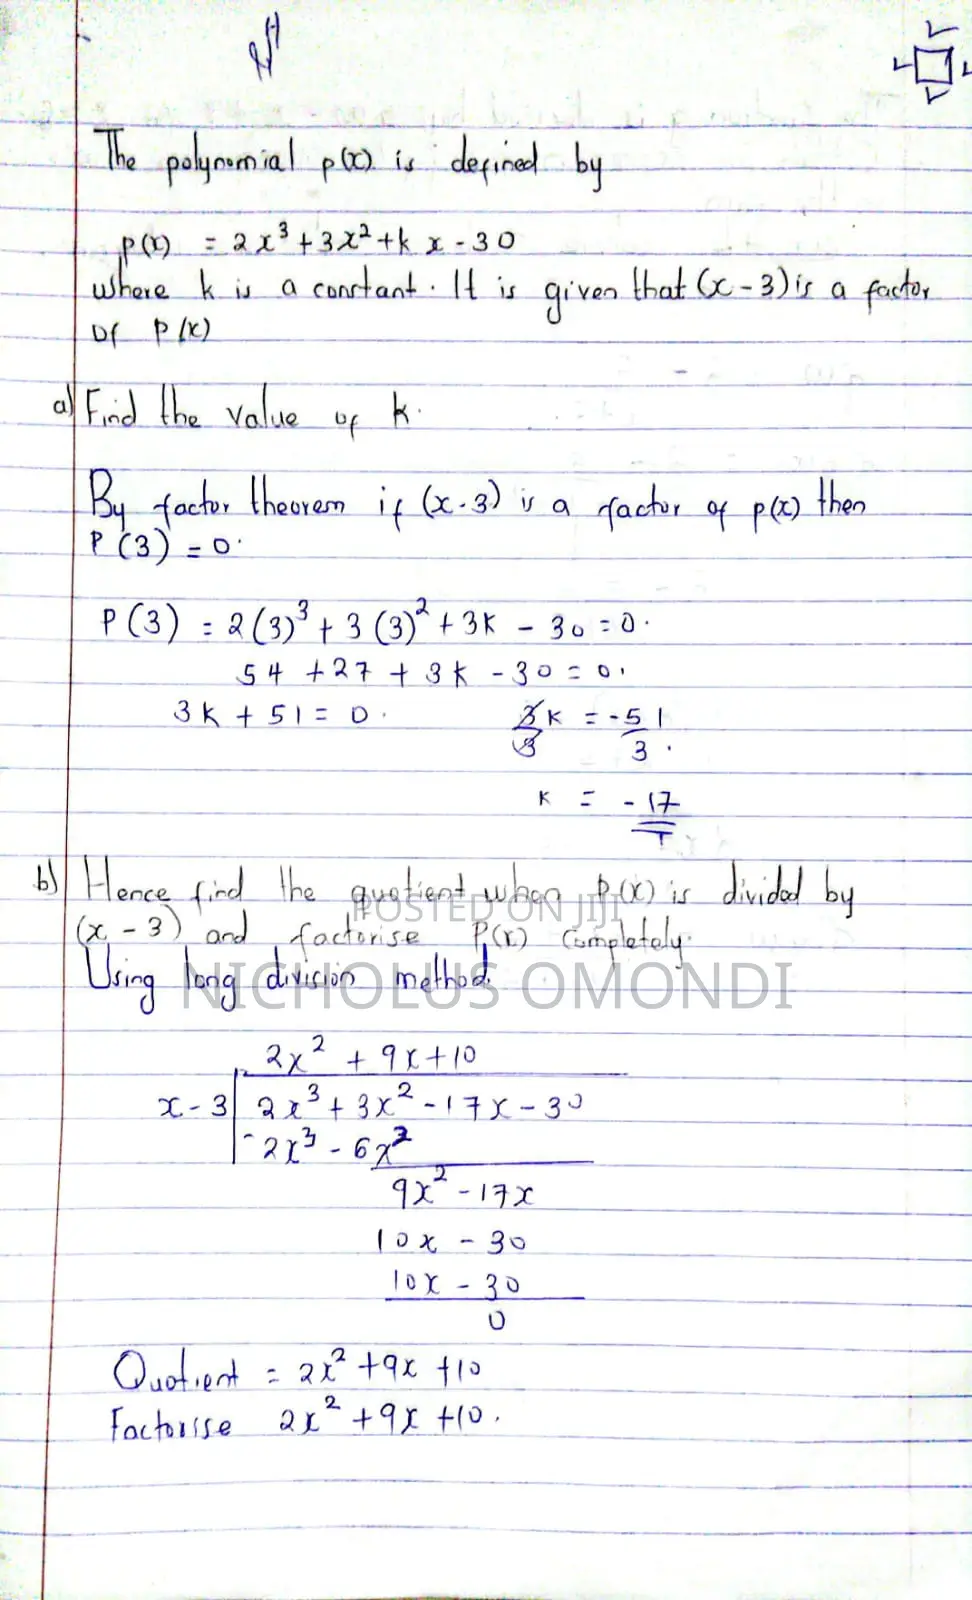 The polynomial p(x) is defined by
p(x) = 2x³ + 3x² + kx - 30
where k is a constant. It is given that (x - 3) is a factor
of P(x)
a) Find the value of k.
By factor theorem if (x - 3) is a factor of p(x) then
P(3) = 0.
P(3) = 2(3)³ + 3(3)² + 3k - 30 = 0.
54 + 27 + 3k - 30 = 0.
3k + 51 = 0. 3k = -51
3 3.
k = -17
b) Hence find the quotient when P(x) is divided by
POSTED ON JIJI
(x - 3) and factorise P(x) completely.
Using long division method.
NICHOLUS OMONDI
2x² + 9x + 10
x - 3 2x³ + 3x² - 17x - 30
- 2x³ - 6x²
9x² - 17x
10x - 30
10x - 30
0
Quotient = 2x² + 9x + 10
Factorise 2x² + 9x + 10.